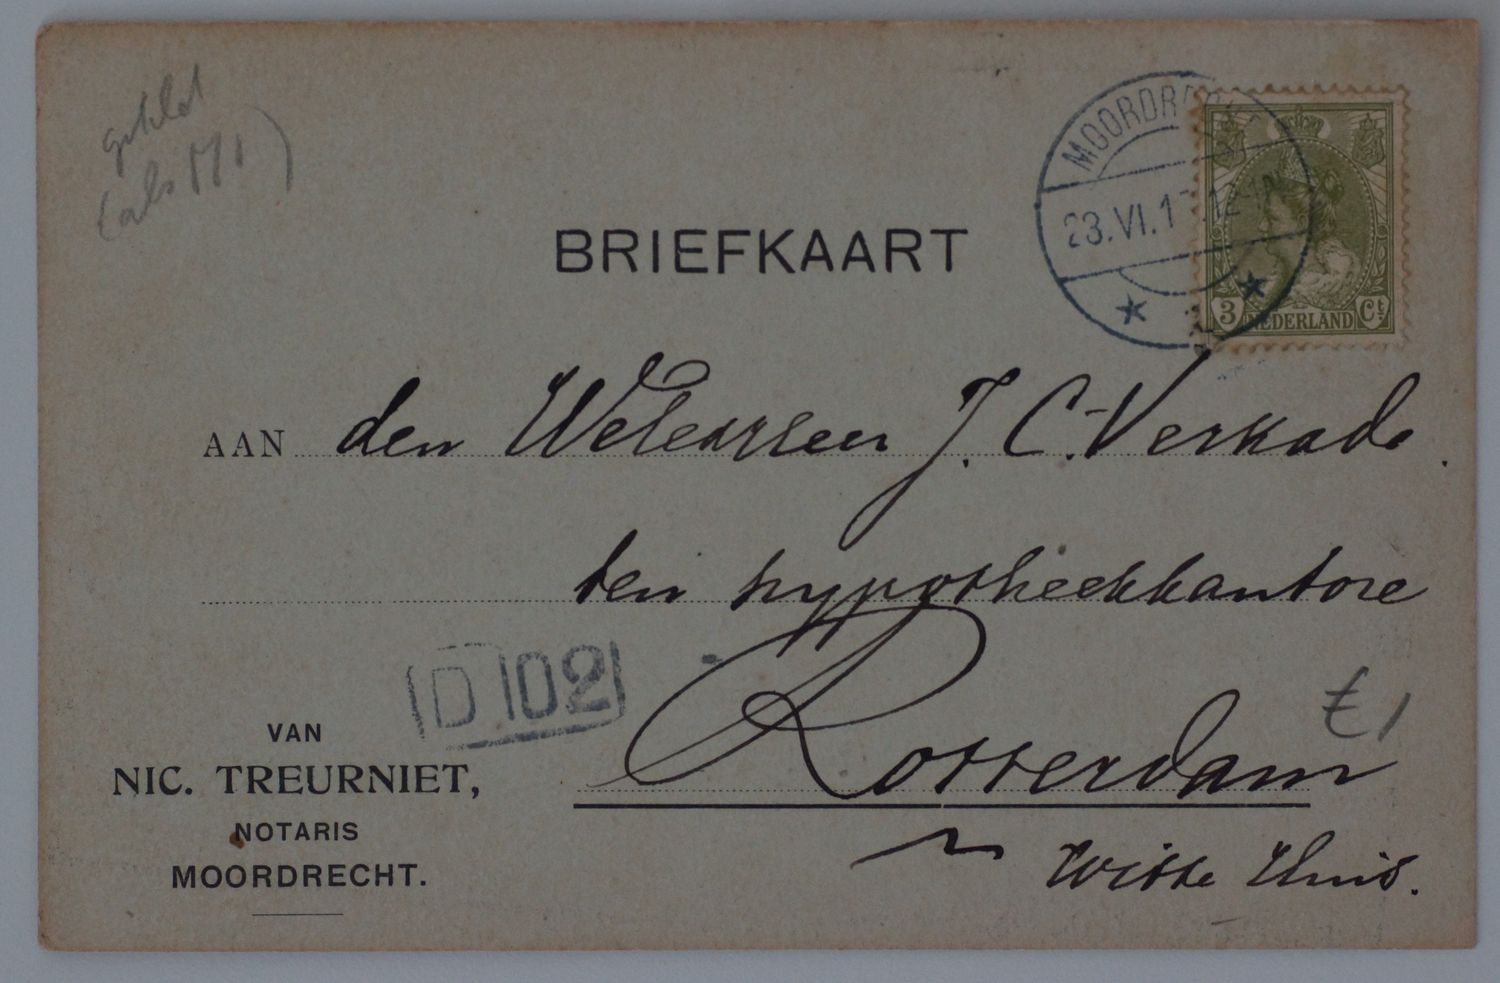 (als M1)
MOORDRECHT
23.VI.1
3 NEDERLAND Ct
BRIEFKAART
AAN den Weledelheer J. C. Verkade.
ten hypotheekkantore
D 102
Rotterdam
Witte Huis.
€1
VAN
NIC. TREURNIET,
NOTARIS
MOORDRECHT.